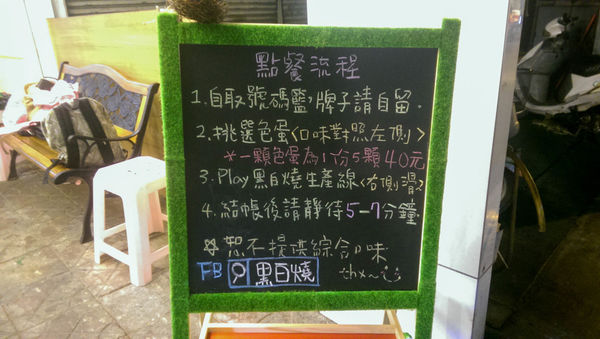 點餐流程
1.自取號碼籃,牌子請自留.
2.挑選色蛋<口味對照左側>
*一顆色蛋為1份5顆40元
3.Play黑白燒生產線<右側滑>
4.結帳後請靜待5-7分鐘.
☆恕不提供綜合口味
FB 黑白燒 thx~